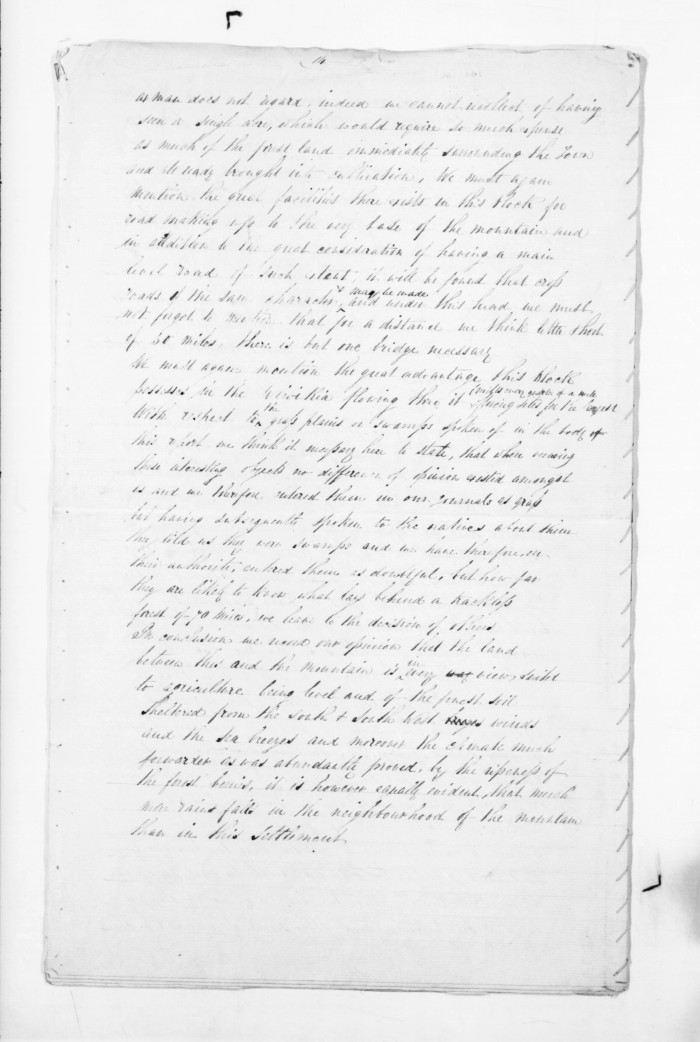 as man does not regard, indeed we cannot recollect of having
seen a single acre, which would require so much expense
as much of the forest land immediately surrounding the Town
and already brought into cultivation. We must again
mention the great facilities there exists in this block for
road making up to the very base of the mountain and
in addition to the great consideration of having a main
level road of such extent, it will be found that cross
roads of the same character may be made, and under this head we must
not forget to mention that for a distance we think little short
of 30 miles, there is but one bridge necessary
We must again mention the great advantage this block
possesses in the flowing thro it every quarter of a mile
With respect to the grass plains or swamps spoken of in the body of
this report we think it necessary here to state, that when viewing
these interesting objects no difference of opinion existed amongst
us and we therefore entered them in our journals as grass
but having subsequently spoken to the natives about them
they told us they were swamps and we have therefore, on
their authority, entered them as doubtful, but how far
they are likely to know what lays behind a trackless
forest of 70 miles, we leave to the decision of others
In conclusion we record our opinion that the land
between this and the mountain is every way suited
to agriculture being level and of the finest soil
Sheltered from the south & South West winds
and the sea breezes and moreover the climate much
forwarder as was abundantly proved, by the ripeness of
the forest berries, it is however equally evident, that much
more rain falls in the neighbourhood of the mountain
than in this Settlement